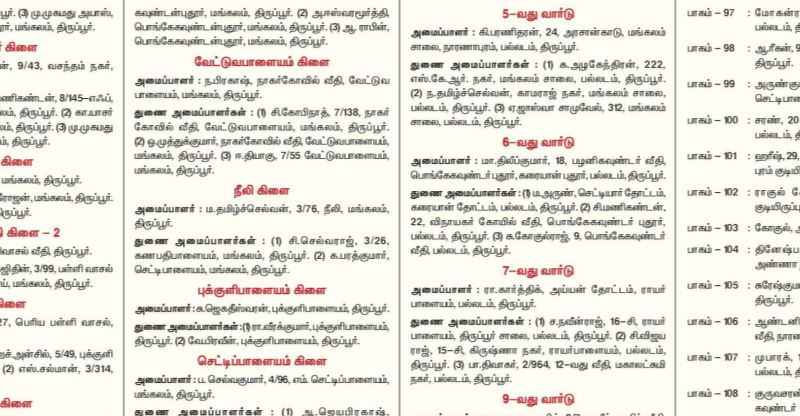 ர். (3) மு.முகமது அயாஸ்,
லூர், மங்கலம், திருப்பூர்.
கிளை
ன், 9/43, வசந்தம் நகர்,
ணிகண்டன், 8/145-எஃப்,
லம், திருப்பூர். (2) கா.யாசர்
லம், திருப்பூர். (3) மு.முகமது
ர், மங்கலம், திருப்பூர்.
கிளை
மங்கலம், திருப்பூர்.
ரோஜன், மங்கலம், திருப்பூர்.
திருப்பூர்.
கிளை – 2
ரிவாசல் வீதி, திருப்பூர்.
ஜிதின், 3/99, பள்ளி வாசல்
ய், மங்கலம், திருப்பூர்.
கிளை
27, பெரிய பள்ளி வாசல்,
றைச்.அன்சில், 5/49, புக்குளி
(2) எஸ்.சல்மான், 3/314,
கிளை
கவுண்டன்புதூர், மங்கலம், திருப்பூர். (2) ஆ.ஈஸ்வரமூர்த்தி,
பொங்கேகவுண்டன்புதூர், மங்கலம், திருப்பூர். (3) ஆ. ராபின்,
பொங்கேகவுண்டன்புதூர், மங்கலம், திருப்பூர்.
வேட்டுவபாளையம் கிளை
அமைப்பாளர் : ந.பிரகாஷ், நாகர்கோவில் வீதி, வேட்டுவ
பாளையம், மங்கலம், திருப்பூர்.
துணை அமைப்பாளர்கள் : (1) சி.கோபிநாத், 7/138, நாகர்
கோவில் வீதி, வேட்டுவபாளையம், மங்கலம், திருப்பூர்.
(2) ஒ.முத்துக்குமார், நாகர்கோவில் வீதி, வேட்டுவபாளையம்,
மங்கலம், திருப்பூர். (3) ஈ.தியாகு, 7/55 வேட்டுவபாளையம்,
மங்கலம், திருப்பூர்.
நீலி கிளை
அமைப்பாளர் : ம.தமிழ்ச்செல்வன், 3/76, நீலி, மங்கலம்,
திருப்பூர்.
துணை அமைப்பாளர்கள் : (1) சி.செல்வராஜ், 3/26,
கணபதிபாளையம், மங்கலம், திருப்பூர். (2) க.பரத்குமார்,
செட்டிபாளையம், மங்கலம், திருப்பூர்.
புக்குளிபாளையம் கிளை
அமைப்பாளர் : சு.ஜெகதீஸ்வரன், புக்குளிபாளையம், திருப்பூர்.
துணை அமைப்பாளர்கள் : (1) ரா.வீரக்குமார், புக்குளிபாளையம்,
திருப்பூர். (2) வே.பிரவீன், புக்குளிபாளையம், திருப்பூர்.
செட்டிப்பாளையம் கிளை
அமைப்பாளர் : ப. செல்வகுமார், 4/96, எம். செட்டிபாளையம்,
மங்கலம், திருப்பூர்.
துணை அமைப்பாளர்கள் : (1) ஆ.ஜெயபிரகாஷ்,
5-வது வார்டு
அமைப்பாளர் : கி.பரணிதரன், 24, அரசான்காடு, மங்கலம்
சாலை, நாரணாபுரம், பல்லடம், திருப்பூர்.
துணை அமைப்பாளர்கள் : (1) க.அழகேந்திரன், 222,
எஸ்.கே.ஆர். நகர், மங்கலம் சாலை, பல்லடம், திருப்பூர்.
(2) ந.தமிழ்ச்செல்வன், காமராஜ் நகர், மங்கலம் சாலை,
பல்லடம், திருப்பூர். (3) ஏ.ஜாஸ்வா சாமுவேல், 312, மங்கலம்
சாலை, பல்லடம், திருப்பூர்.
6-வது வார்டு
அமைப்பாளர் : மா.திலீப்குமார், 18, பழனிகவுண்டர் வீதி,
பொங்கேகவுண்டர் புதூர், கரையான் புதூர், பல்லடம், திருப்பூர்.
துணை அமைப்பாளர்கள் : (1) ம.அருண், செட்டியார் தோட்டம்,
கரையான் தோட்டம், பல்லடம், திருப்பூர். (2) சி.மணிகண்டன்,
22, விநாயகர் கோயில் வீதி, பொங்கேகவுண்டர் புதூர்,
பல்லடம், திருப்பூர். (3) சு.கோகுல்ராஜ், 9, பொங்கேகவுண்டர்
வீதி, பல்லடம், திருப்பூர்.
7-வது வார்டு
அமைப்பாளர் : ரா.கார்த்திக், அய்யன் தோட்டம், ராயர்
பாளையம், பல்லடம், திருப்பூர்.
துணை அமைப்பாளர்கள் : (1) ச.நவீன்ராஜ், 16-சி, ராயர்
பாளையம், திருப்பூர் சாலை, பல்லடம், திருப்பூர். (2) சி.விஜய
ராஜ், 15-சி, கிருஷ்ணா நகர், ராயர்பாளையம், பல்லடம்,
திருப்பூர். (3) பா.திவாகர், 2/964, 12-வது வீதி, மகாலட்சுமி
நகர், பல்லடம், திருப்பூர்.
9-வது வார்டு
பாகம் – 97 : மோகன்ர
பல்லடம், தி
பாகம் – 98 : ஆரீகன், 9
திருப்பூர்.
பாகம் – 99 : அருண்கு
செட்டிபாளை
பாகம் – 100 : சரண், 20
பல்லடம், தி
பாகம் – 101 : ஹரீஷ், 29,
புரம் குடியி
பாகம் – 102 : ராகுல் கே
குடியிருப்பு
பாகம் – 103 : கோகுல், ஆ
பாகம் – 104 : தினேஷ்ப
அண்ணா ந
பாகம் – 105 : சுரேஷ்கும
திருப்பூர்.
பாகம் – 106 : ஆண்டனி
வீதி, நாரண
பாகம் – 107 : முபாரக், 1
பல்லடம், தி
பாகம் – 108 : குருசரண்
கவுண்டர்